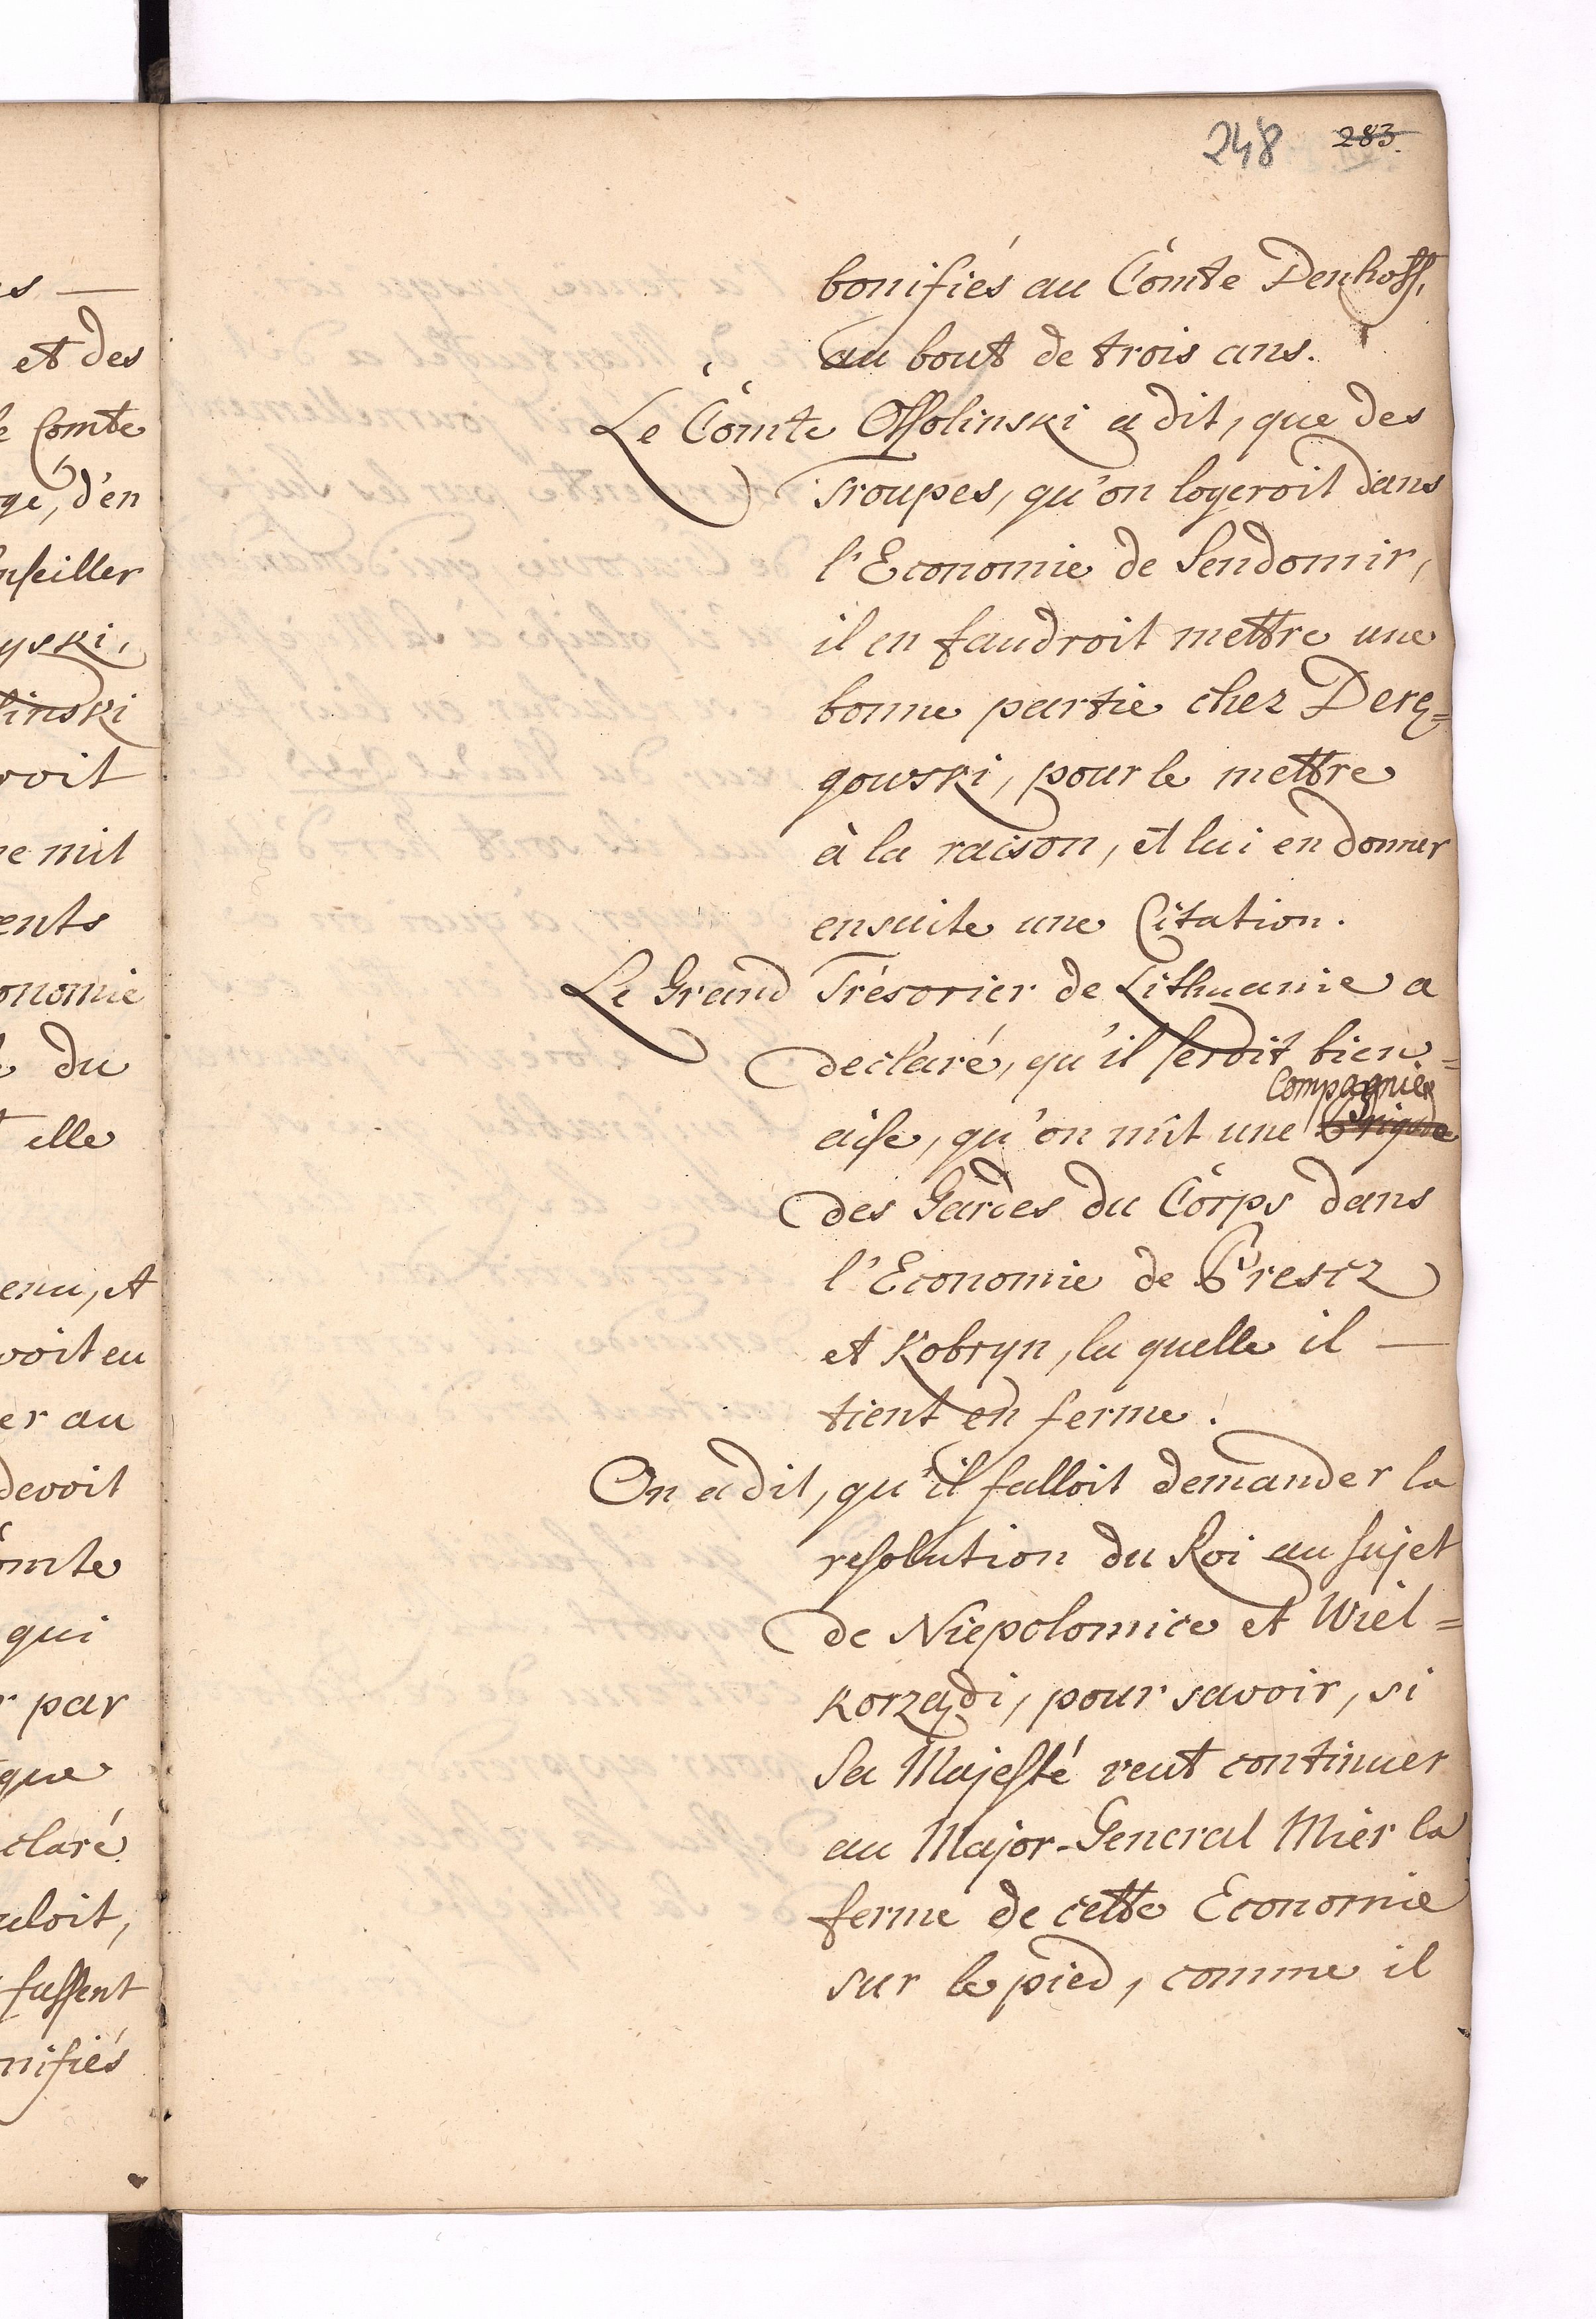 248 283.
bonifiés au Comte Denhoff,
au bout de trois ans.
Le Comte Ossolinski a dit, que des
Troupes, qu'on logeroit dans
l'Economie de Sendomir,
il en faudroit mettre une
bonne partie chez Derę=
gowski, pour le mettre
à la raison, et lui en donner
ensuite une Citation.
Le Grand Trésorier de Lithuanie a
declaré, qu'il seroit bien=
aise, qu'on mît une Compagnie Brigade
des Gardes du Corps dans
l'Economie de Brescz
et Kobryn, la quelle il —
tient en ferme.
On a dit, qu'il falloit demander la
resolution du Roi au sujet
de Niepolomice et Wiel=
korządi, pour savoir, si
Sa Majesté veut continuer
au Major-General Mier la
ferme de cette Economie
sur le pied, comme il
s —
et des
Comte
gé, d'en
nseiller
yski,
linski
roit
e mit
ents
onomie
du
elle
enu, et
voit eu
er au
devoit
omte
qui
par
que
claré
uloit,
fussent
nifiés